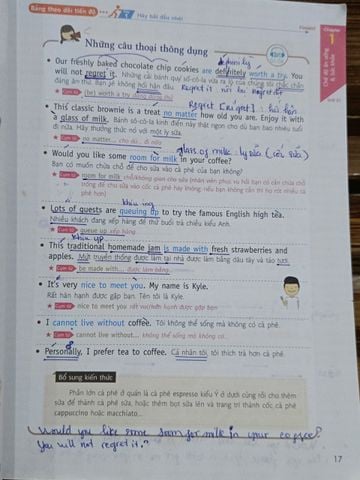 Bảng theo dõi tiến độ
Hãy bắt đầu nhé!
Chapter
1
Chế độ ăn uống
& Sức khỏe
Những câu thoại thông dụng
• Our freshly baked chocolate chip cookies are definitely worth a try. You
will not regret it. Những cái bánh quy sô-cô-la vừa ra lò của chúng tôi chắc chắn
đáng ăn thử. Bạn sẽ không hối hận đâu. Regret it
(be) worth a try
Regret
• This classic brownie is a treat no matter how old you are. Enjoy it with
a glass of milk. Bánh sô-cô-la kinh điển này thật ngon cho dù bạn bao nhiêu tuổi
đi nữa. Hãy thưởng thức nó với một ly sữa.
no matter... cho dù... đi nữa
glass of milk: ly sữa
• Would you like some room for milk in your coffee?
Bạn có muốn chừa chỗ để cho sữa vào cà phê của bạn không?
room for milk
trống để cho sữa vào cốc cà phê hay không; nếu bạn không cần thì họ rót nhiều cà
phê hơn)
• Lots of guests are queuing up to try the famous English high tea.
Nhiều khách đang xếp hàng để thử buổi trà chiều kiểu Anh.
queue up xếp hàng
• This traditional homemade jam is made with fresh strawberries and
apples. Mứt truyền thống được làm tại nhà được làm bằng dâu tây và táo tươi.
be made with... được làm bằng...
• It's very nice to meet you. My name is Kyle.
Rất hân hạnh được gặp bạn. Tên tôi là Kyle.
nice to meet you rất vui/hân hạnh được gặp bạn
• I cannot live without coffee. Tôi không thể sống mà không có cà phê.
cannot live without... không thể sống mà không có...
• Personally, I prefer tea to coffee. Cá nhân tôi, tôi thích trà hơn cà phê.
Bổ sung kiến thức
Phần lớn cà phê ở quán là cà phê espresso kiểu Ý ở dưới cùng rồi cho thêm
sữa để thành cà phê sữa, hoặc thêm bọt sữa lên và trang trí thành cốc cà phê
cappuccino hoặc macchiato...
Would you like some room for milk in your coffee?
You will not regret it.
17